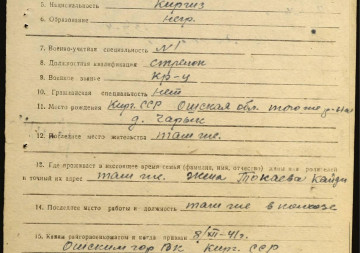 5. Национальность Киргиз
6. Образование негр.
7. Военно-учетная специальность № 1
8. Должностная квалификация стрелок
9. Военное звание кр-ц
10. Гражданская специальность нет
11. Место рождения Кирг. ССР Ошская обл.
д. Чарык
12. Последнее место жительства там же.
13. Где проживает в настоящее время семья (фамилия, имя, отчество) жены или родителей
и точный их адрес там же. жена Токаева
14. Последнее место работы и должность там же в колхозе
15. Каким райгорвоенкоматом и когда призван
Ошским гор ВК Кирг. ССР